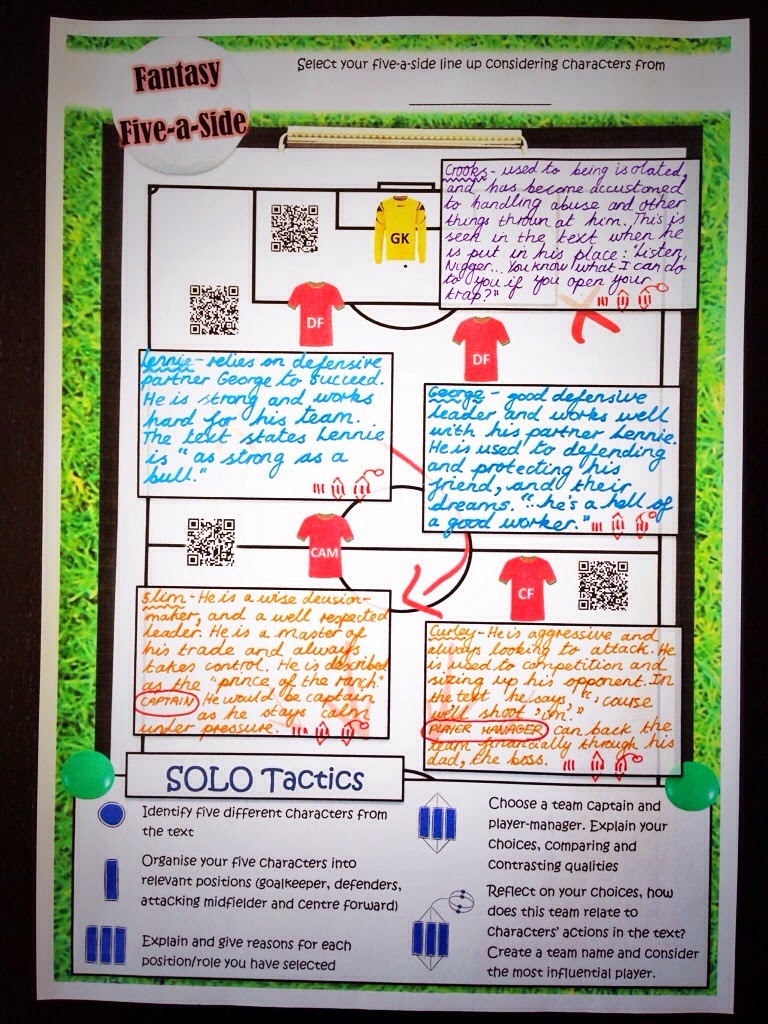 Fantasy
Five-a-Side
Select your five-a-side line up considering characters from
GK
Crooks - used to being isolated,
and has become accustomed
to handling abuse and other
things thrown at him. This is
seen in the text when he
is put in his place: "Listen,
Nigger... You know what I can do
to you if you open your
trap?"
DF
DF
Lennie - relies on defensive
partner George to succeed.
He is strong and works
hard for his team.
The text states Lennie
is "as strong as a
bull."
George - good defensive
leader and works well
with his partner Lennie.
He is used to defending
and protecting his
friend, and their
dreams. "...he's a hell of
a good worker."
CAM
CF
Slim - He is a wise decision-
maker, and a well respected
leader. He is a master of
his trade and always
takes control. He is described
as the "prince of the ranch."
CAPTAIN He would be captain
as he stays calm
under pressure.
Curley - He is aggressive and
always looking to attack. He
is used to competition and
sizing up his opponent. In
the text he says, "'cause
will shoot 'im."
PLAYER MANAGER can back the
team financially through his
dad, the boss.
SOLO Tactics
Identify five different characters from
the text
Organise your five characters into
relevant positions (goalkeeper, defenders,
attacking midfielder and centre forward)
Explain and give reasons for each
position/role you have selected
Choose a team captain and
player-manager. Explain your
choices, comparing and
contrasting qualities
Reflect on your choices, how
does this team relate to
characters' actions in the text?
Create a team name and consider
the most influential player.